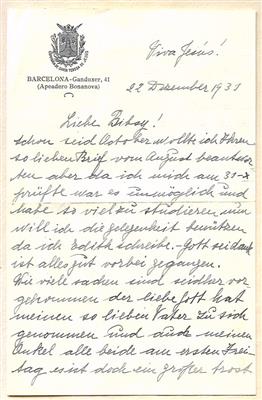 BARCELONA-Ganduxer, 41
(Apeadero Bonanova)
Viva Jesús!
22 Dezember 1931
Liebe Betsy!
schon seid October wollte ich Ihren
so lieben Brief vom August beantwor-
ten aber da ich mich am 31-X
prüfte war es unmöglich und
habe so viel zu studieren nun
will ich die gelegenheit benützen
da ich Edith schreibe - Gott sei dank
ist alles gut vorbei gegangen.
Wie viel sachen sind seidher vor-
gekommen der liebe Gott hat
meinen so lieben Vater zu sich
genommen und auch meinen
Onkel alle beide am ersten Frei-
tag es ist doch ein großer trost